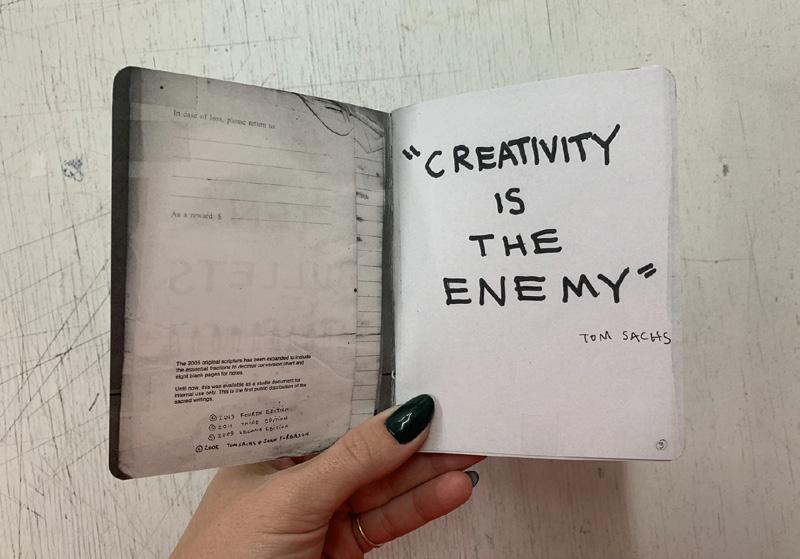 In case of loss, please return to:
As a reward: $
The 2005 original scripture has been expanded to include
the essential fractions to decimal conversion chart and
eight blank pages for notes.
Until now, this was available as a studio document for
internal use only. This is the first public distribution of the
sacred writings.
© 2013 FOURTH EDITION
© 2011 THIRD EDITION
© 2009 SECOND EDITION
© 2005 TOM SACHS & JOHN FERGUSON
"CREATIVITY
IS
THE
ENEMY"
TOM SACHS
3